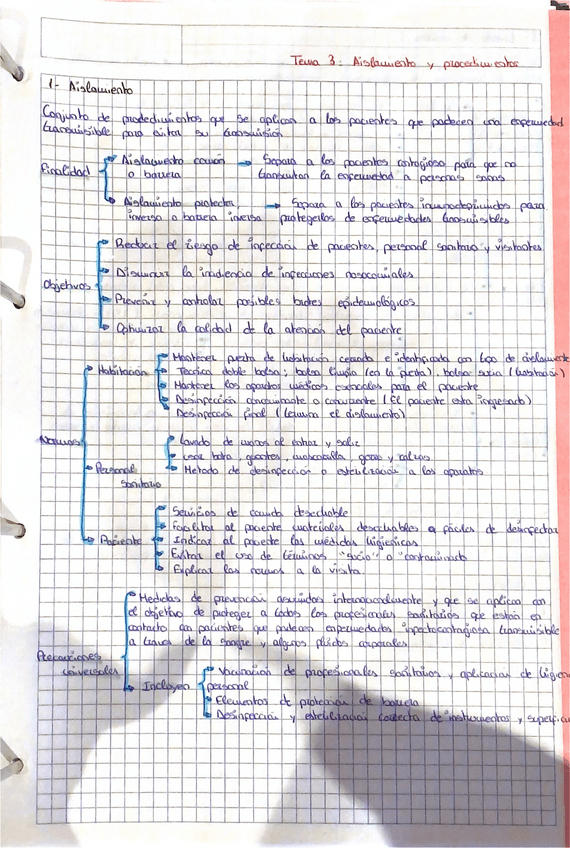 Tema 3: Aislamiento y procedimientos
1- Aislamiento
Conjunto de procedimientos que se aplican a los pacientes que padecen una enfermedad
transmisible para evitar su transmisión
Finalidad
Aislamiento común → Separa a los pacientes contagioso para que no
o barrera transmitan la enfermedad a personas sanas
Aislamiento protector, → Separa a los pacientes inmunodeprimidos para
inverso o barrera inversa protegerlos de enfermedades transmisibles
Objetivos
Reducir el riesgo de infección de pacientes, personal sanitario y visitantes
Disminuir la incidencia de infecciones nosocomiales
Prevenir y controlar posibles brotes epidemiológicos
Optimizar la calidad de la atención del paciente
Normas
Habitación
Mantener puerta de habitación cerrada e identificada con tipo de aislamiento
Técnica doble bolsa: bolsa limpia (en la puerta), bolsa sucia (habitación)
Mantener los aparatos médicos esenciales para el paciente
Desinfección concomitante o concurrente (El paciente esta ingresado)
Desinfección final (termina el aislamiento)
Personal
sanitario
Lavado de manos al entrar y salir
usar bata, guantes, mascarilla, gorro y calzas
Metodo de desinfección o esterilización a los aparatos
Paciente
Servicios de comida desechable
Facilitar al paciente materiales desechables o fáciles de desinfectar
Indicar al paciente las medidas higiénicas
Evitar el uso de términos "sucio" o "contaminado"
Explicar las normas a la visita.
Precauciones
universales
Medidas de prevención asumidas internacionalmente y que se aplican con
el objetivo de proteger a todos los profesionales sanitarios que están en
contacto con pacientes que padecen enfermedades infectocontagiosa transmisible
a través de la sangre y algunos fluidos corporales
Incluyen
Vacunación de profesionales sanitarios y aplicación de higiene
personal
Elementos de protección de barrera
Desinfección y esterilización correcta de instrumentos y